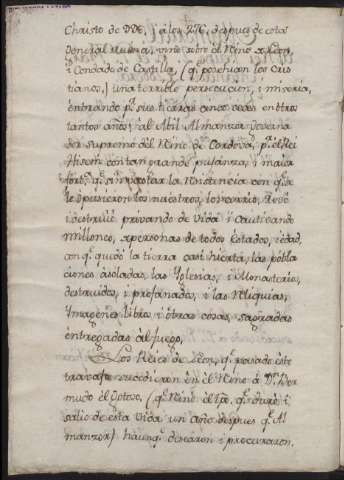 Christo de DDC, a los DCC, despues de esta
General ruina, vino sobre el Reino de Leon,
i Condado de Castilla, (q. posehian los Cris
tianos,) una terrible persecucion, i miseria,
entrando p. sus tierras cinco veces en otros
tantos años, al Abil Almanzor Governa
dor supremo del Reino de Cordova, p. el Rei
Hisem con tan grande pujanza, i maior
fort. q. sin bastar la resistencia con q. se
le opusieron los nuestros, los corrio, Robó
i destruió privando de vida i cautivando
millones, de personas de todos estados, i edad,
con q. quedó la tierra casi hierta, las pobla
ciones asoladas, las Iglesias, i Monasterios,
destruidos, i profanados, i las Reliquias,
Imagenes libros i otras cosas, sagradas
entregadas al fuego,
Los Reies de Leon, q. pasado este
travajo succedieron en el Reino á D. Ver
mudo el Gotoso, (q. Reinó el tpo. q. duró i
salió de esta vida un año despues q. Al
manzor) haunq. desearon i procuraron,